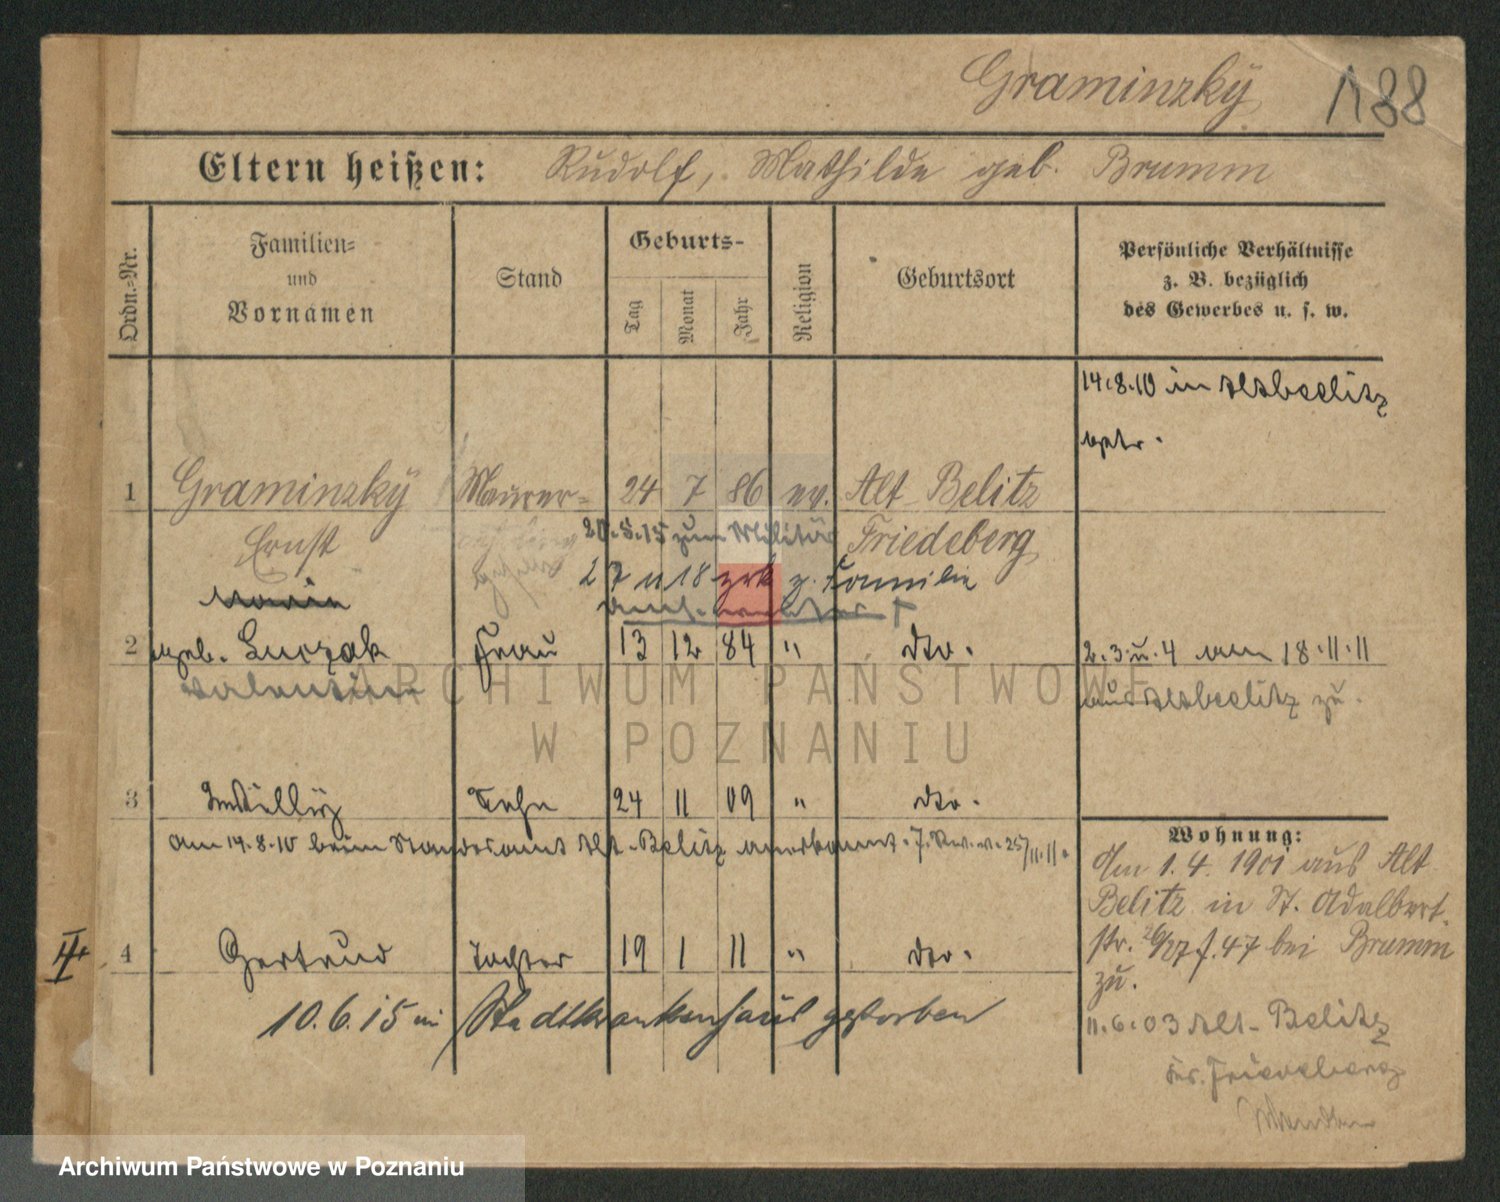 Graminzky 188
Eltern heißen: Rudolf, Mathilde geb. Brumm
Ordn.-Nr.
Familien-
und
Vornamen
Stand
Geburts-
Tag Monat Jahr
Religion
Geburtsort
Persönliche Verhältnisse
z. B. bezüglich
des Gewerbes u. s. w.
14.8.10 in Altbeelitz
1 Graminzky Maurer- 24 7 86 ev. Alt Belitz
Ernst 20.5.15 zum Militär Friedeberg
27 11 18 zrk z. Familie
Marie
2 geb. Luczak Frau 13 12 84 " dto.
Valentine
2. 3. u. 4 am 18.11.11
aus Altbeelitz zu.
3 Willy Sohn 24 11 09 " dto.
am 14.8.10 beim Standesamt Alt-Belitz anerkannt. 25/11.11.
4 Gertrud Tochter 19 1 11 " dto.
10.6.15 im Stadtkrankenhaus gestorben
Wohnung:
Am 1.4.1901 aus Alt
Belitz in St. Adalbert-
str. 26/27 f. 47 bei Brumm
zu.
11.6.03 Alt-Belitz
Kr. Friedeberg
ARCHIWUM PAŃSTWOWE
W POZNANIU
Archiwum Państwowe w Poznaniu